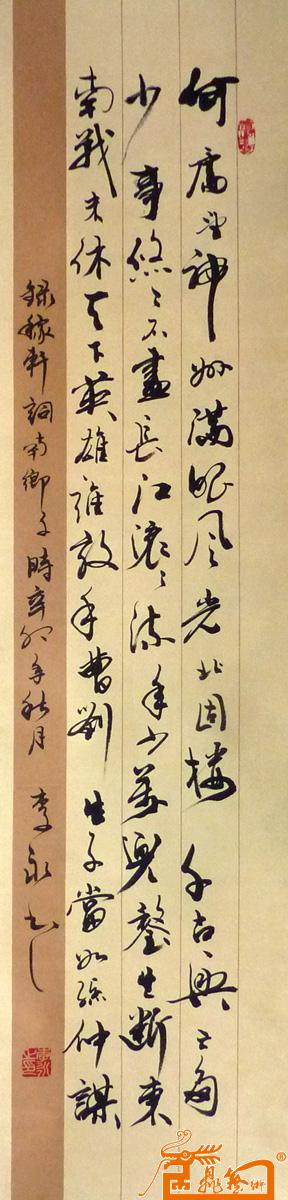 何處望神州滿眼風光北固樓千古興亡多
少事悠〻不盡長江滾〻流年少萬兜鍪坐斷東
南戰未休天下英雄誰敵手曹劉生子當如孫仲謀
錄稼軒詞南鄉子時辛卯年秋月 李永書